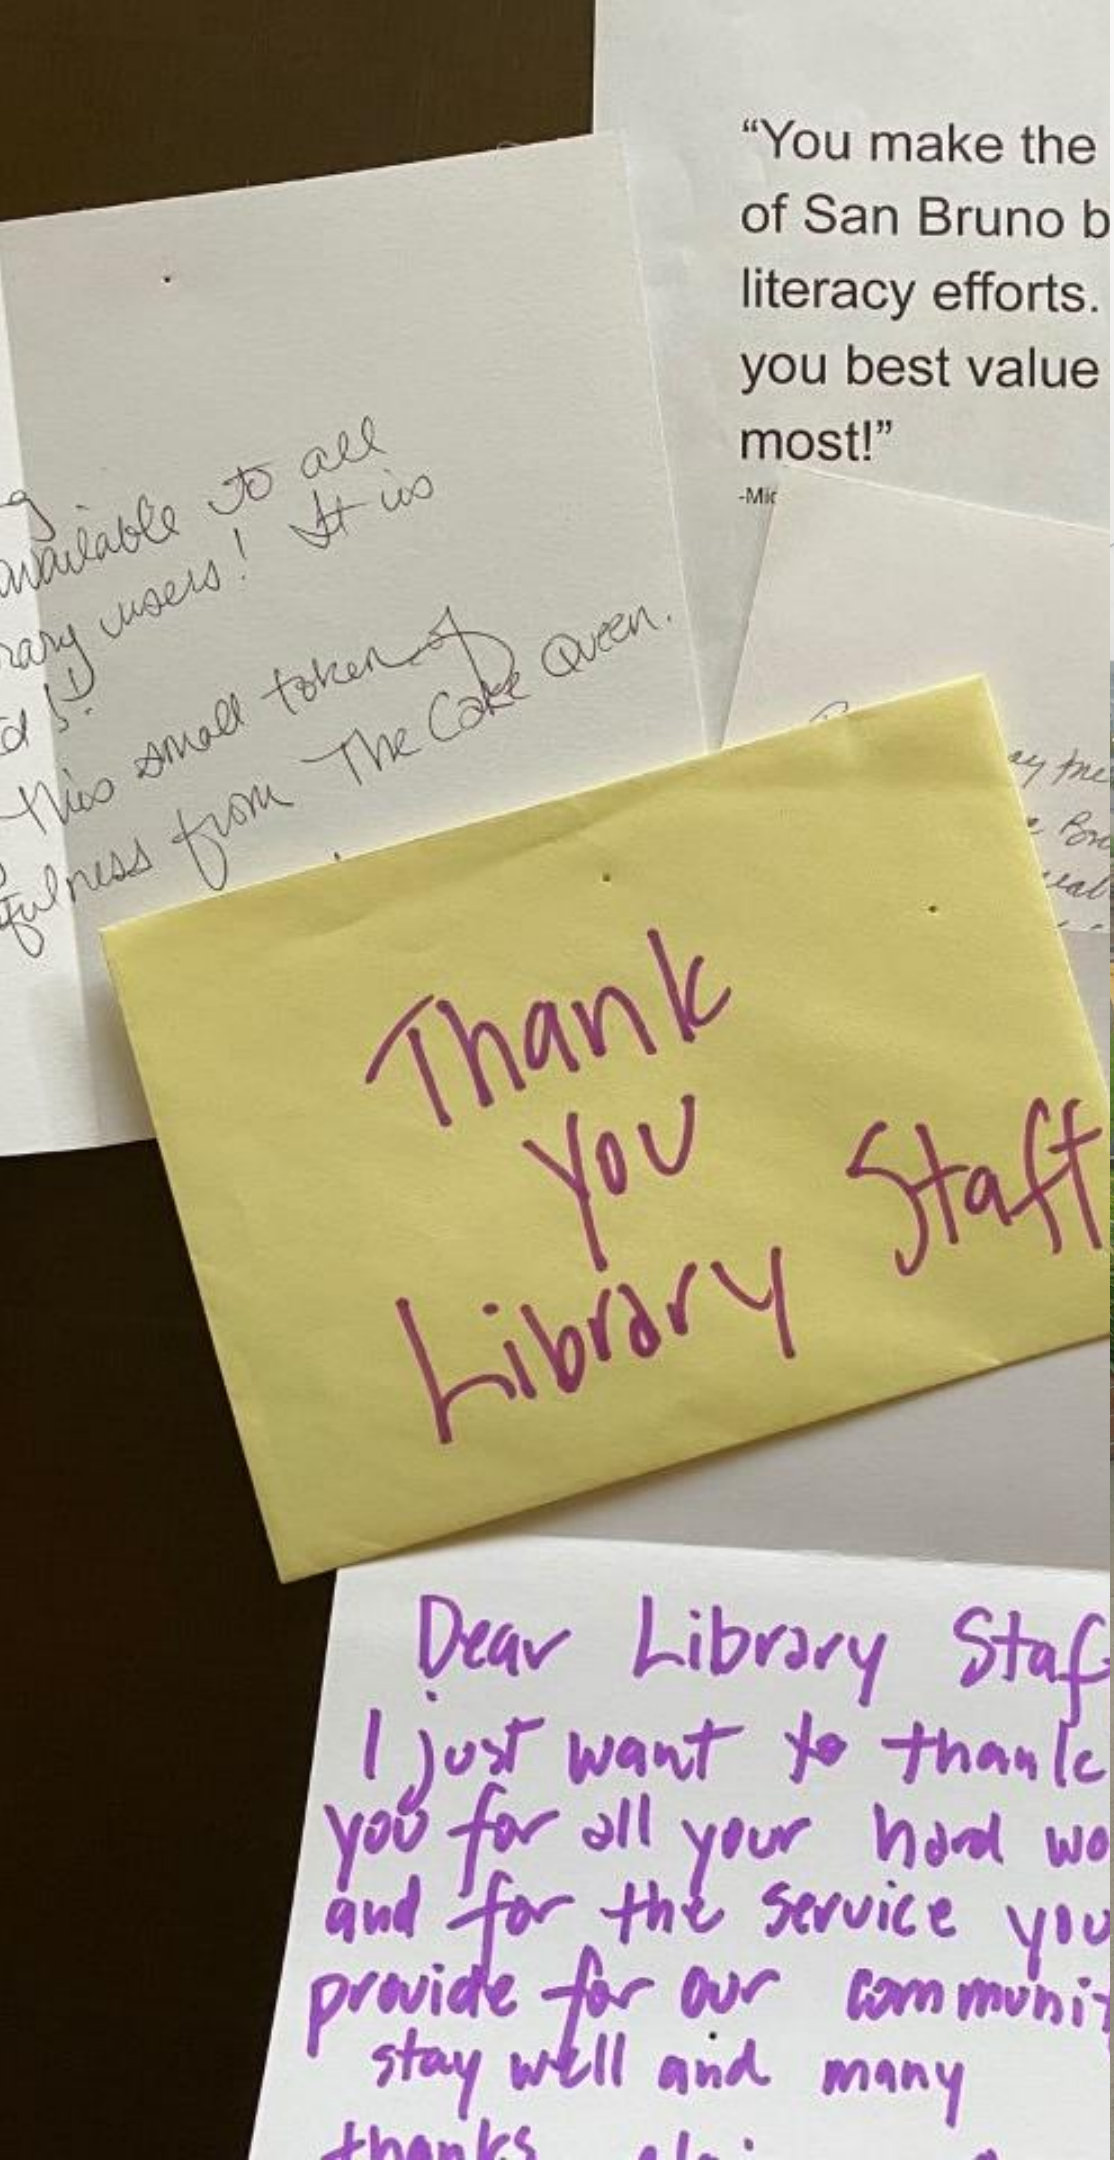 “You make the
of San Bruno b
literacy efforts.
you best value
most!”
-Mic
g
available to all
rary users! It is
d!
This small token of
fulness from The Cake Queen.
ay me
Thank
You
Library Staff
Dear Library Staf
I just want to thank
you for all your hard wo
and for the service you
provide for our communit
stay well and many
thanks